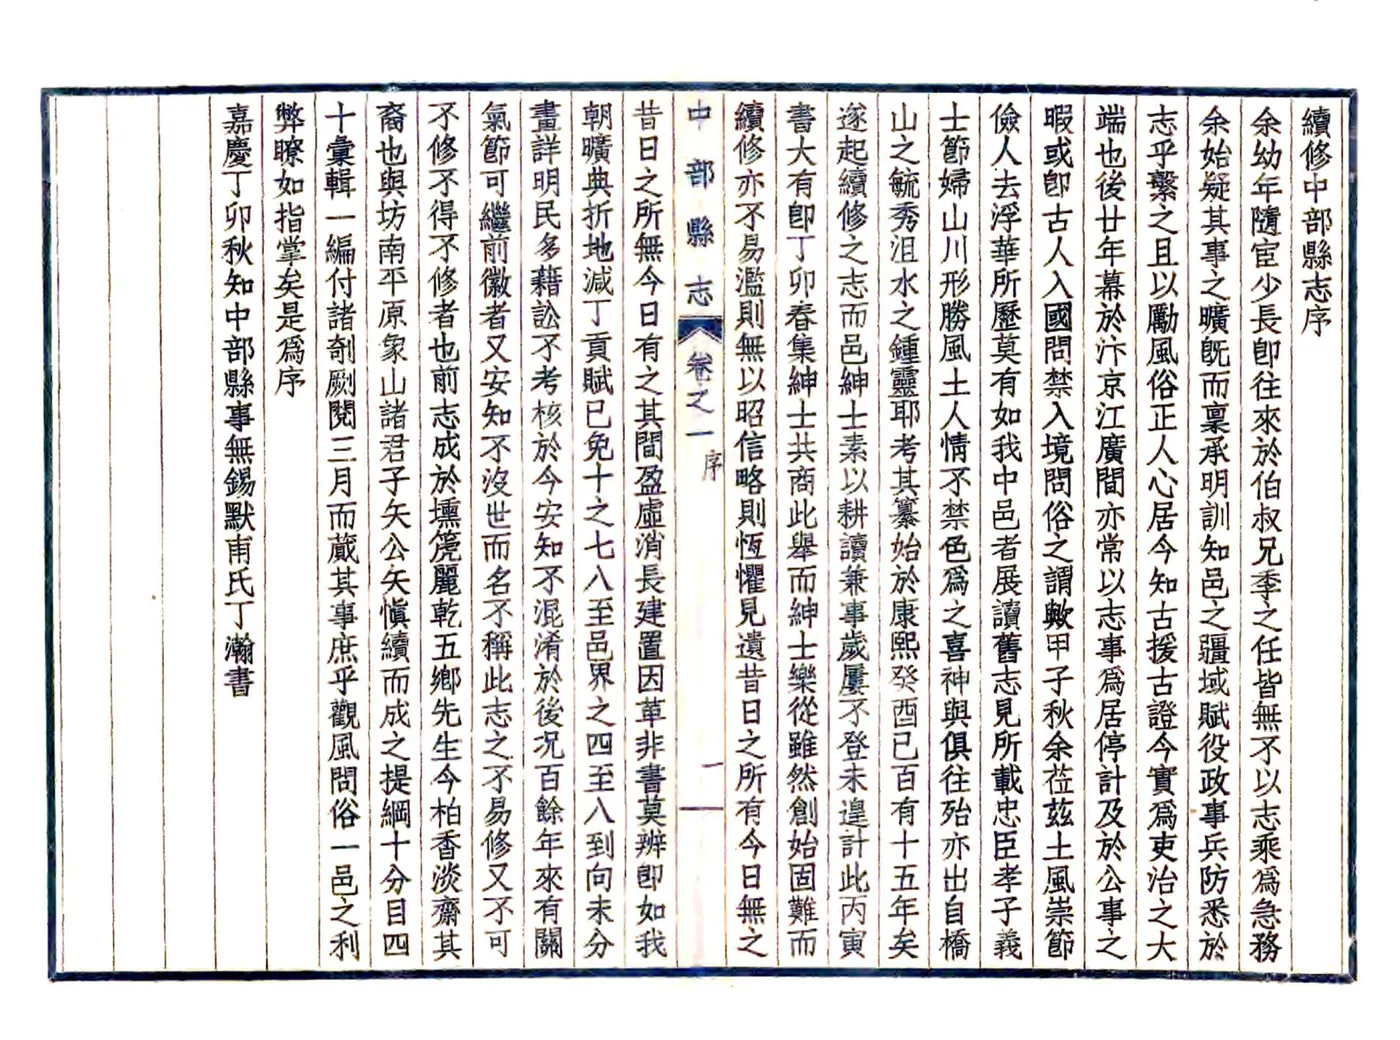 續修中部縣志序
余幼年隨宦少長卽往來於伯叔兄季之任皆無不以志乘爲急務
余始疑其事之曠旣而稟承明訓知邑之疆域賦役政事兵防悉於
志乎繫之且以勵風俗正人心居今知古援古證今實爲吏治之大
端也後廿年幕於汴京江廣間亦常以志事爲居停計及於公事之
暇或卽古人入國問禁入境問俗之謂歟甲子秋余莅茲土風崇節
儉人去浮華所歷莫有如我中邑者展讀舊志見所載忠臣孝子義
士節婦山川形勝風土人情不禁色爲之喜神與俱往殆亦出自橋
山之毓秀沮水之鍾靈耶考其纂始於康熙癸酉已百有十五年矣
遂起續修之志而邑紳士素以耕讀兼事歲屢不登未遑計此丙寅
書大有卽丁卯春集紳士共商此舉而紳士樂從雖然創始固難而
續修亦不易濫則無以昭信略則恆懼見遺昔日之所有今日無之
中部縣志 卷之一 序 一
昔日之所無今日有之其間盈虛消長建置因革非書莫辨卽如我
朝曠典折地減丁貢賦已免十之七八至邑界之四至八到向未分
畫詳明民多藉訟不考核於今安知不混淆於後况百餘年來有關
氣節可繼前徽者又安知不沒世而名不稱此志之不易修又不可
不修不得不修者也前志成於壎箎麗乾五鄉先生今柏香淡齋其
裔也與坊南平原象山諸君子矢公矢愼續而成之提綱十分目四
十彙輯一編付諸剞劂閱三月而蕆其事庶乎觀風問俗一邑之利
弊瞭如指掌矣是爲序
嘉慶丁卯秋知中部縣事無錫默甫氏丁瀚書